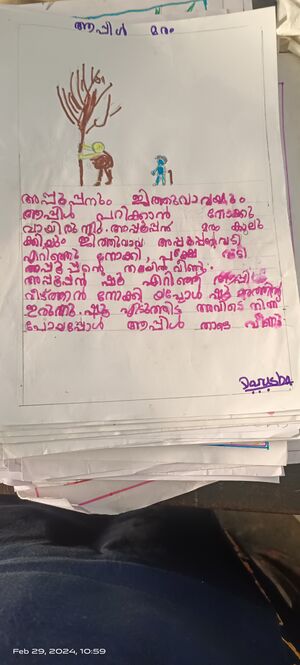 ആപ്പിൾ മരം
അപ്പൂപ്പനും ജിത്തുവാവയും
ആപ്പിൾ പറിക്കാൻ നോക്കു
വായിരുന്നു. അപ്പൂപ്പൻ മരം കുലു
ക്കിയും ജിത്തുവാവ അപ്പൂപ്പന്റെവടി
എറിഞ്ഞു നോക്കി, പക്ഷേ വടി
അപ്പൂപ്പന്റെ തലയിൽവീണു.
അപ്പൂപ്പൻ ഷൂ എറിഞ്ഞ് ആപ്പിൾ
വീഴ്ത്താൻ നോക്കി യപ്പോൾ ഷൂ മരത്തിൽ
ഇരുന്നു. ഷൂ എടുത്തിട്ട് അവിടെ നിന്ന്
പോയപ്പോൾ ആപ്പിൾ താഴെ വീണു
Feb 29, 2024, 10:59